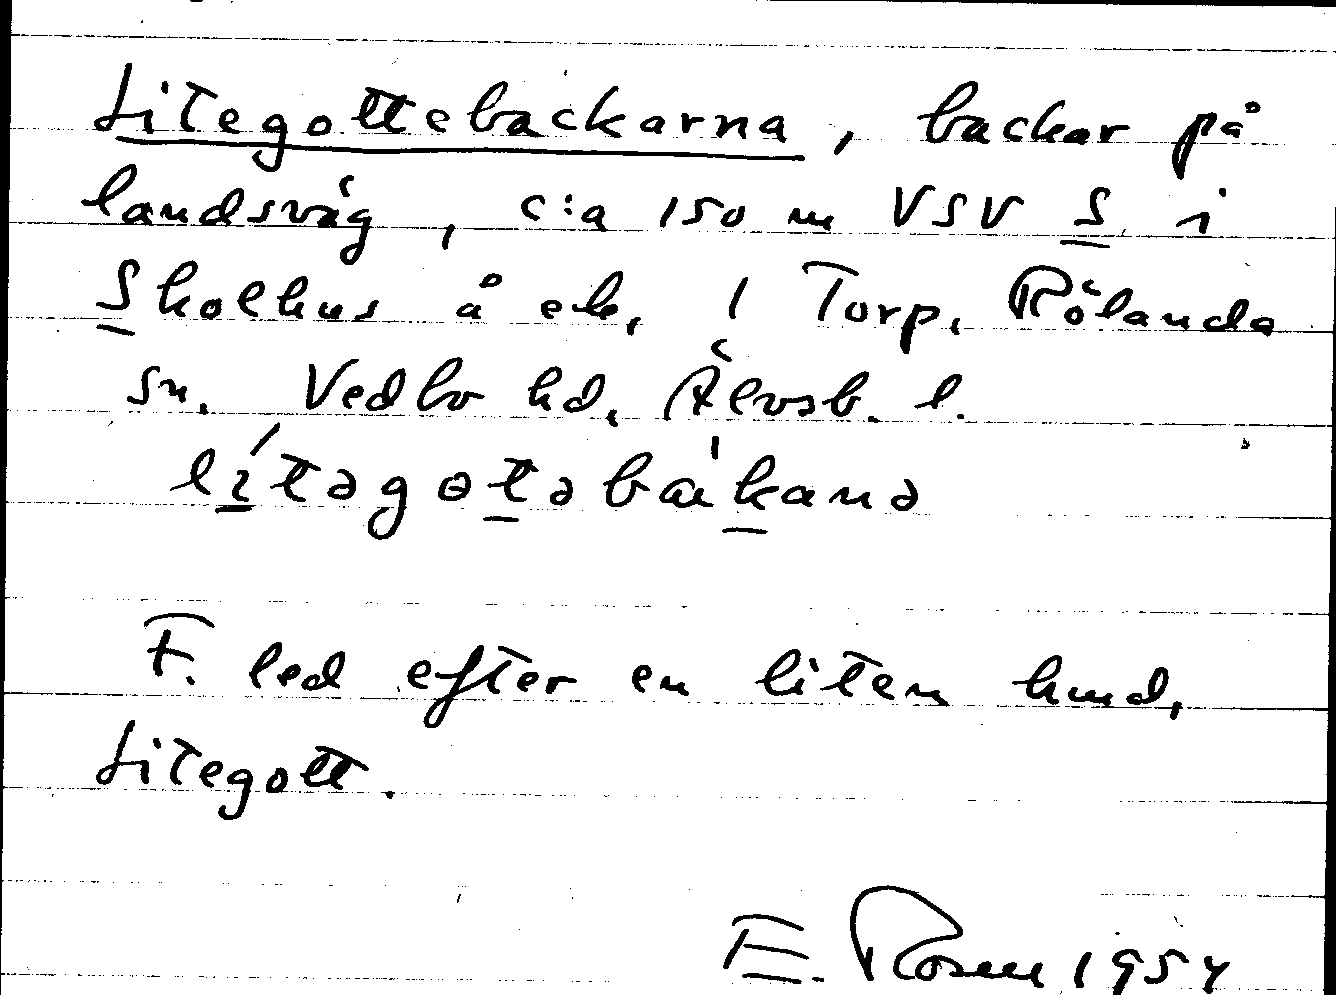 Litegottebackarna, backar på
landsväg, c:a 150 m VSV S i
Skolhus å ek, 1 Torp, Rölanda
sn. Vedbo hd, Älvsb. l.
lítəgotəbàkanə
F. led efter en liten hund,
Litegott.
E. Rosen 1954